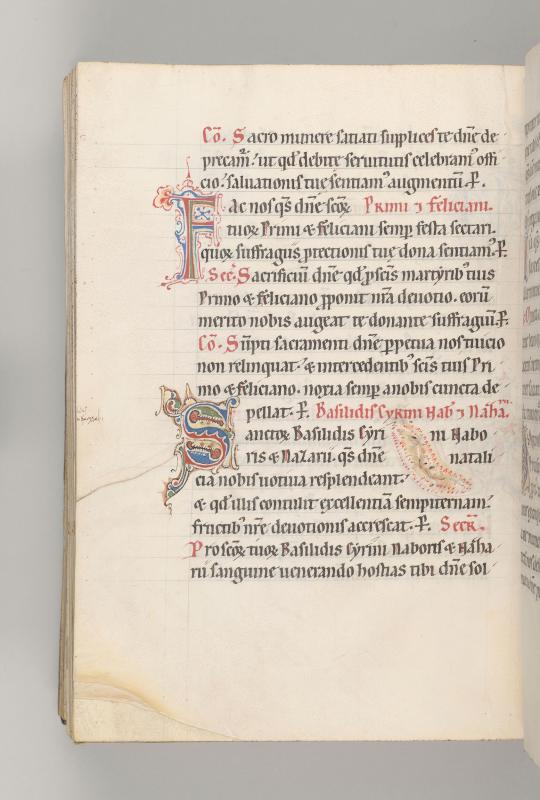 Cō. Sacro munere satiati supplices te dn̄e de
precam᷒ᷓ. ut qd̓ debite seruitutis celebram᷒ offi
cio. saluationis tue sentiam᷒ augmentū. P̲.
Fac nos qs̄ dn̄e scōꝝ Primi ⁊ feliciani.
tuoꝝ Primi & feliciani semp̲ festa sectari.
quoꝝ suffragiis p̲tectionis tue dona sentiam᷒. P̲.
Sec̄. Sacrificiū dn̄e qd̓ p̲ sc̄is martyrib᷒ tuis
Primo & feliciano p̲ponit nr̄a deuotio. eorū
merito nobis augeat te donante suffragiū. P̲.
Cō. Sūpti sacramenti dn̄e p̲petua nos tuicio
non relinquat. & intercedentib᷒ sc̄is tuis Pri
mo & feliciano. noxia semp̲ a nobis cuncta de
pellat. P̲. Basilidis Cyrini Nab̄ ⁊ Naȥa.
Sanctoꝝ Basilidis Cyri ni Nabo
ris & Naȥarii. qs̄ dn̄e natali
cia nobis uotiua resplendeant.
& qd̓ illis contulit excellentiā sempiternam.
fructib᷒ nr̄e deuotionis accrescat. P̲. Secr̄.
Pro scōꝝ tuoꝝ Basilidis Cyrini Naboris & Naȥa
rii sanguine uenerando hostias tibi dn̄e sol